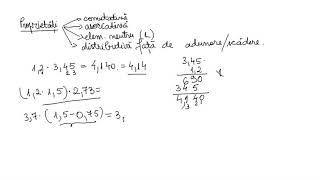 Proprietăți
comutativă
asociativă
elem. neutru (1)
distributivă față de adunare/scădere.
1,2 · 3,45 = 4,140 = 4,14
3,45 ·
1,2
690
345
4,140
(1,2 · 1,5) · 2,73 =
3,7 · (1,5 - 0,75) = 3,